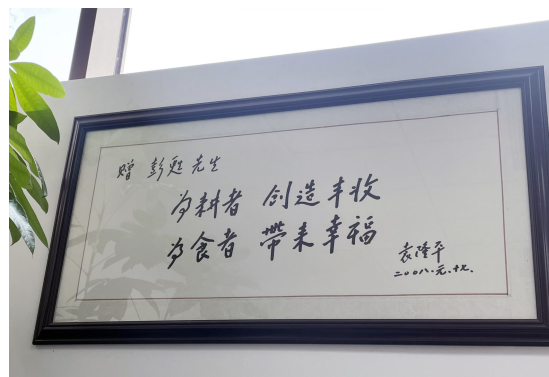 赠 彭 先生
为耕者 创造丰收
为食者 帶来幸福
袁隆平
二00八.元.十九.